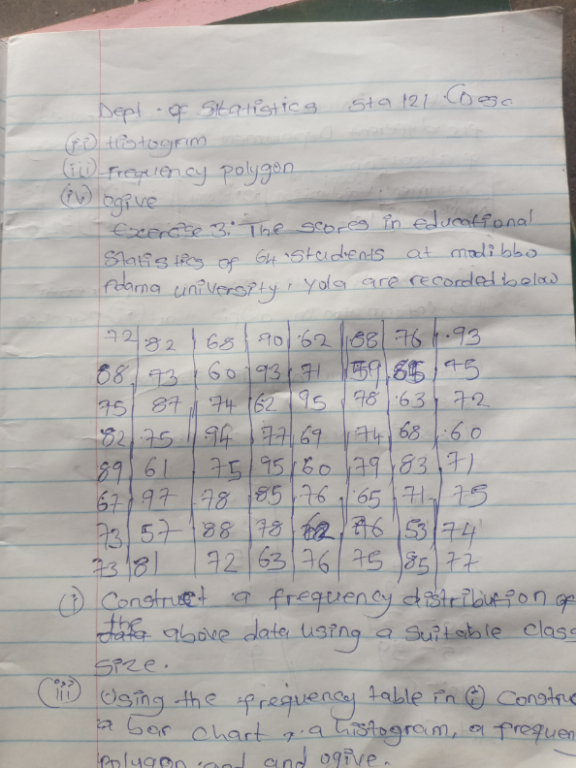 Dept. of Statistics Sta 121
(ii) Histogram
(iii) Frequency polygon
(iv) ogive
Exercise 3: The scores in educational
Statistics of 64 students at modibbo
Adama university, Yola are recorded below
72 82 68 90 62 88 76 93
88 73 60 93 71 59 85 75
75 87 74 62 95 78 63 72
82 75 94 77 69 74 68 60
89 61 75 95 60 79 83 71
67 97 78 85 76 65 71 75
73 57 88 78 62 76 53 74
73 81 72 63 76 75 85 77
(i) Construct a frequency distribution of
the above data using a suitable class
size.
(iii) Using the frequency table in (i) Constru
a bar chart, a histogram, a frequen
polygon and and ogive.